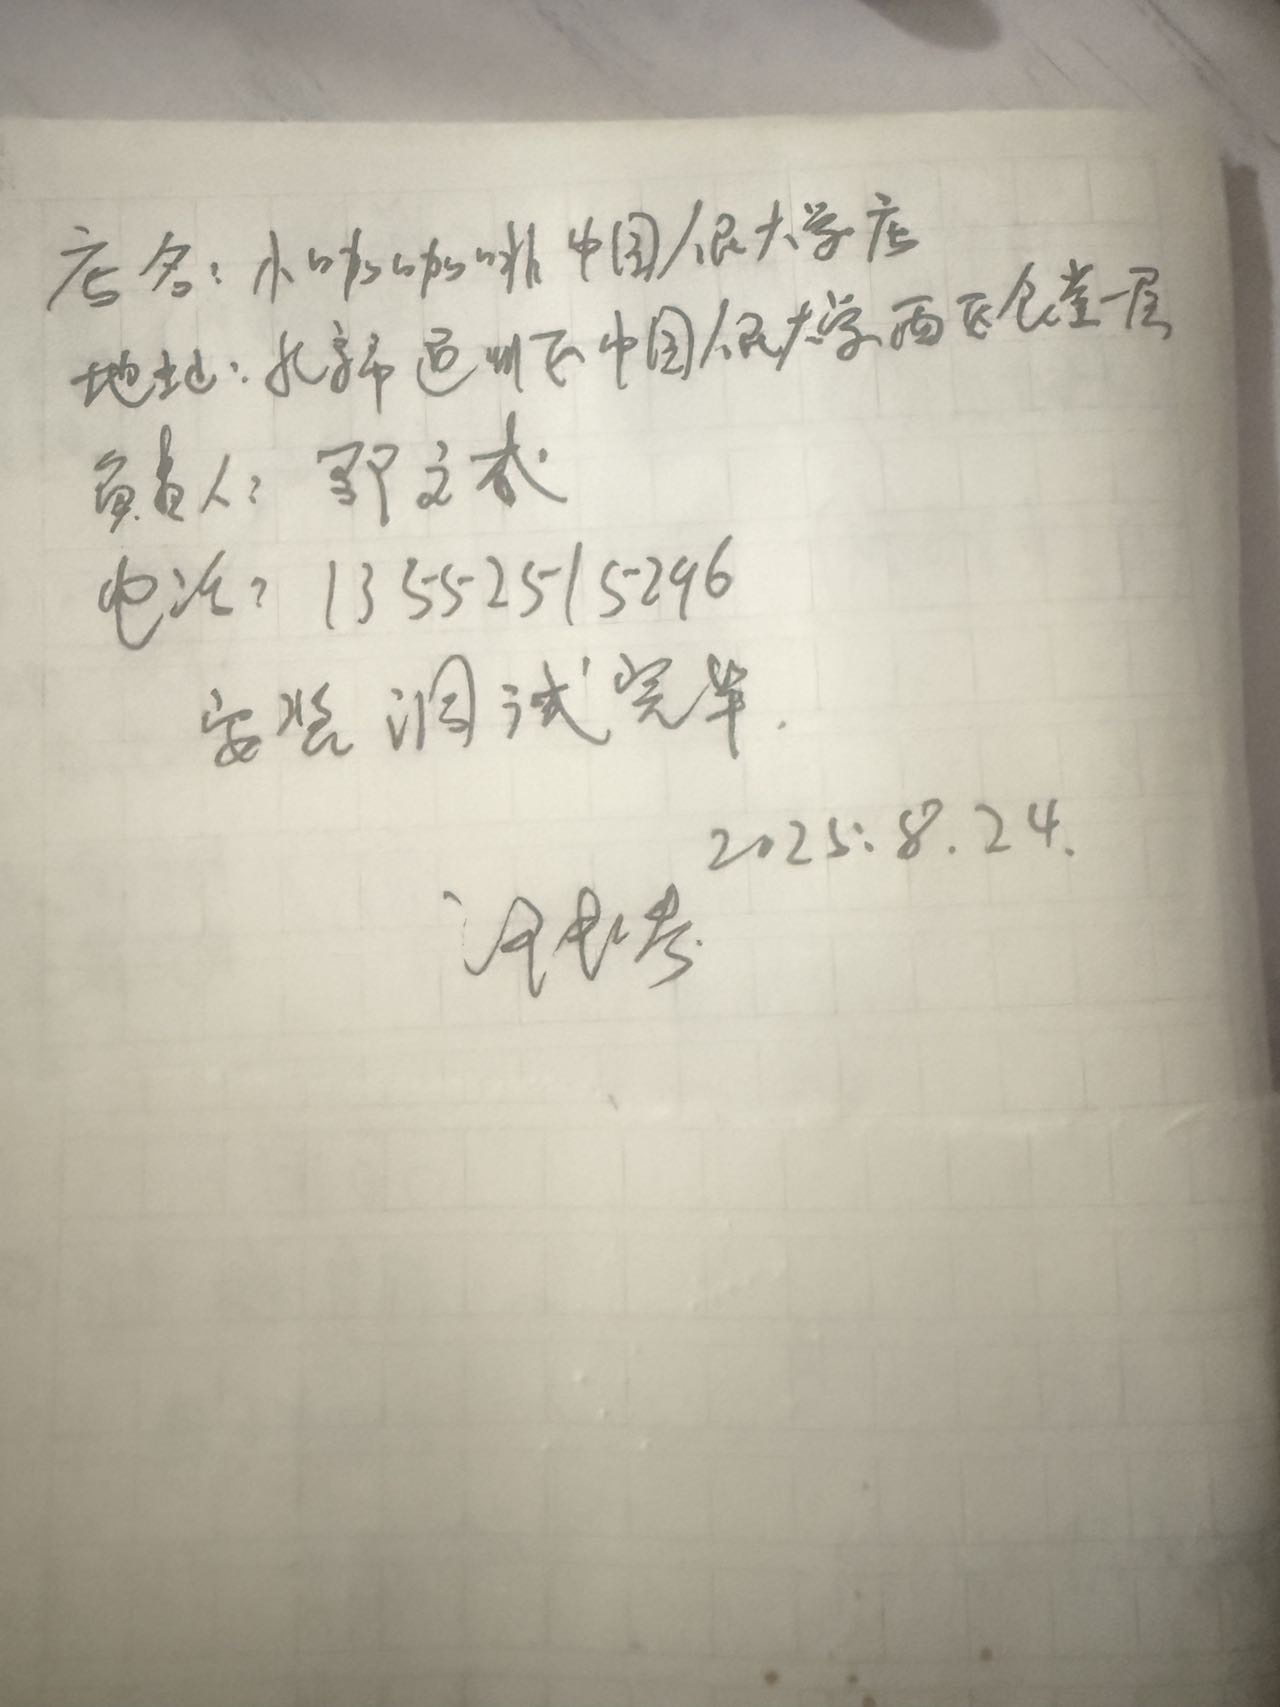 店名：小咖咖啡中国人民大学店
地址：北京市通州区中国人民大学西区食堂一层
负责人：郭文武
电话：13552515296
安装调试完毕.
2025.8.24.